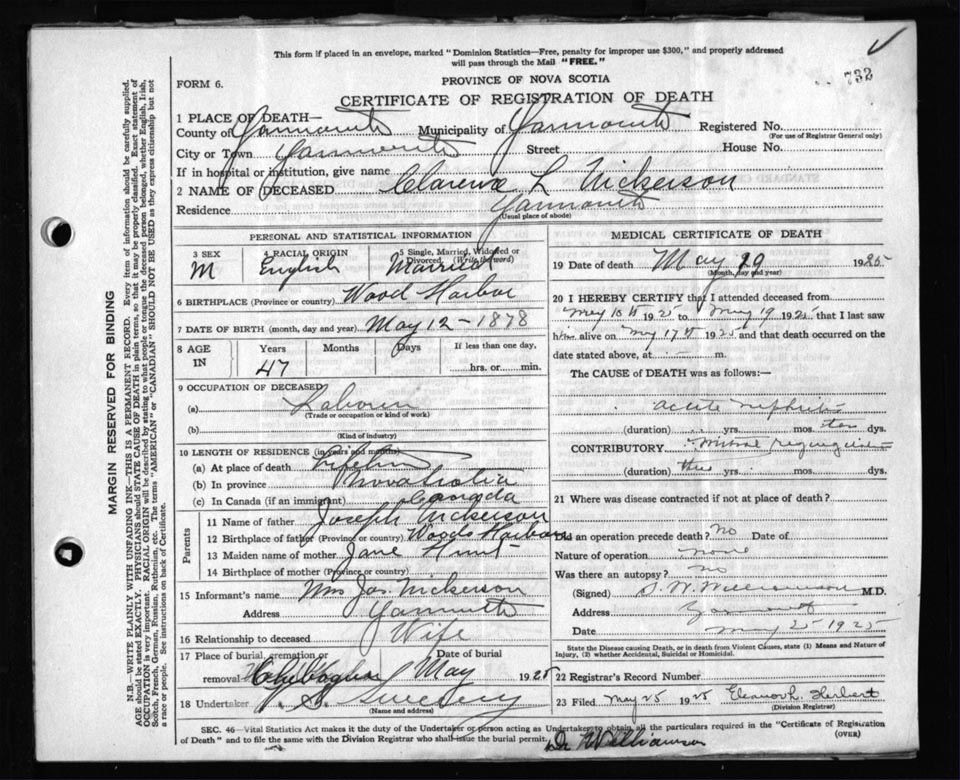 This form if placed in an envelope, marked "Dominion Statistics—Free, penalty for improper use $300," and properly addressed
will pass through the Mail "FREE."
732
FORM 6.
PROVINCE OF NOVA SCOTIA
CERTIFICATE OF REGISTRATION OF DEATH
1 PLACE OF DEATH—
County of Yarmouth Municipality of Yarmouth Registered No.
(For use of Registrar General only)
City or Town Yarmouth Street House No.
If in hospital or institution, give name
2 NAME OF DECEASED Clarence L Nickerson
Residence Yarmouth
(Usual place of abode)
PERSONAL AND STATISTICAL INFORMATION
3 SEX 4 RACIAL ORIGIN 5 Single, Married, Widowed or Divorced, (Write the word)
M English Married
6 BIRTHPLACE (Province or country) Wood Harbor
7 DATE OF BIRTH (month, day and year) May 12 - 1878
8 AGE IN Years Months Days If less than one day,
47 hrs. or min.
9 OCCUPATION OF DECEASED
(a) Labourer
(Trade or occupation or kind of work)
(b)
(Kind of industry)
10 LENGTH OF RESIDENCE (in years and months)
(a) At place of death
(b) In province Nova Scotia
(c) In Canada (if an immigrant) Canada
Parents
11 Name of father Joseph Nickerson
12 Birthplace of father (Province or country) Woods Harbor
13 Maiden name of mother Jane Hunt
14 Birthplace of mother (Province or country)
15 Informant's name Mrs Jas Nickerson
Address Yarmouth
16 Relationship to deceased Wife
17 Place of burial, cremation or removal Date of burial
Chebogue May 1925
18 Undertaker V. S. Sweeny
(Name and address)
MEDICAL CERTIFICATE OF DEATH
19 Date of death May 19 1925
(Month, day and year)
20 I HEREBY CERTIFY that I attended deceased from
May 10th 1925 to May 19 1925, that I last saw
him alive on May 17th 1925 and that death occurred on the
date stated above, at m.
The CAUSE of DEATH was as follows:—
acute nephritis
(duration) yrs. mos. ten dys.
CONTRIBUTORY Mitral regurgitation
(duration) yrs. mos. dys.
21 Where was disease contracted if not at place of death?
Did an operation precede death? No Date of
Nature of operation none
Was there an autopsy? No
(Signed) D. W. Williamson M.D.
Address Yarmouth
Date May 25 1925
State the Disease causing Death, or in death from Violent Causes, state (1) Means and Nature of
Injury, (2) whether Accidental, Suicidal or Homicidal.
22 Registrar's Record Number
23 Filed May 25 1925 Eleanor L. Herbert
(Division Registrar)
SEC. 46—Vital Statistics Act makes it the duty of the Undertaker or person acting as Undertaker to obtain all the particulars required in the "Certificate of Registration
of Death" and to file the same with the Division Registrar who shall issue the burial permit. (OVER)
Dr Williamson
MARGIN RESERVED FOR BINDING
N.B.—WRITE PLAINLY WITH UNFADING INK—THIS IS A PERMANENT RECORD. Every item of information should be carefully supplied.
AGE should be stated EXACTLY. PHYSICIANS should STATE CAUSE OF DEATH in plain terms, so that it may be properly classified. Exact statement of
OCCUPATION is very important. RACIAL ORIGIN will be described by stating to what people or tongue the deceased person belonged, whether English, Irish,
Scotch, French, German, Russian, Ruthenian, etc. The terms "AMERICAN" or "CANADIAN" SHOULD NOT BE USED as they express citizenship but not
a race or people. See instructions on back of Certificate.